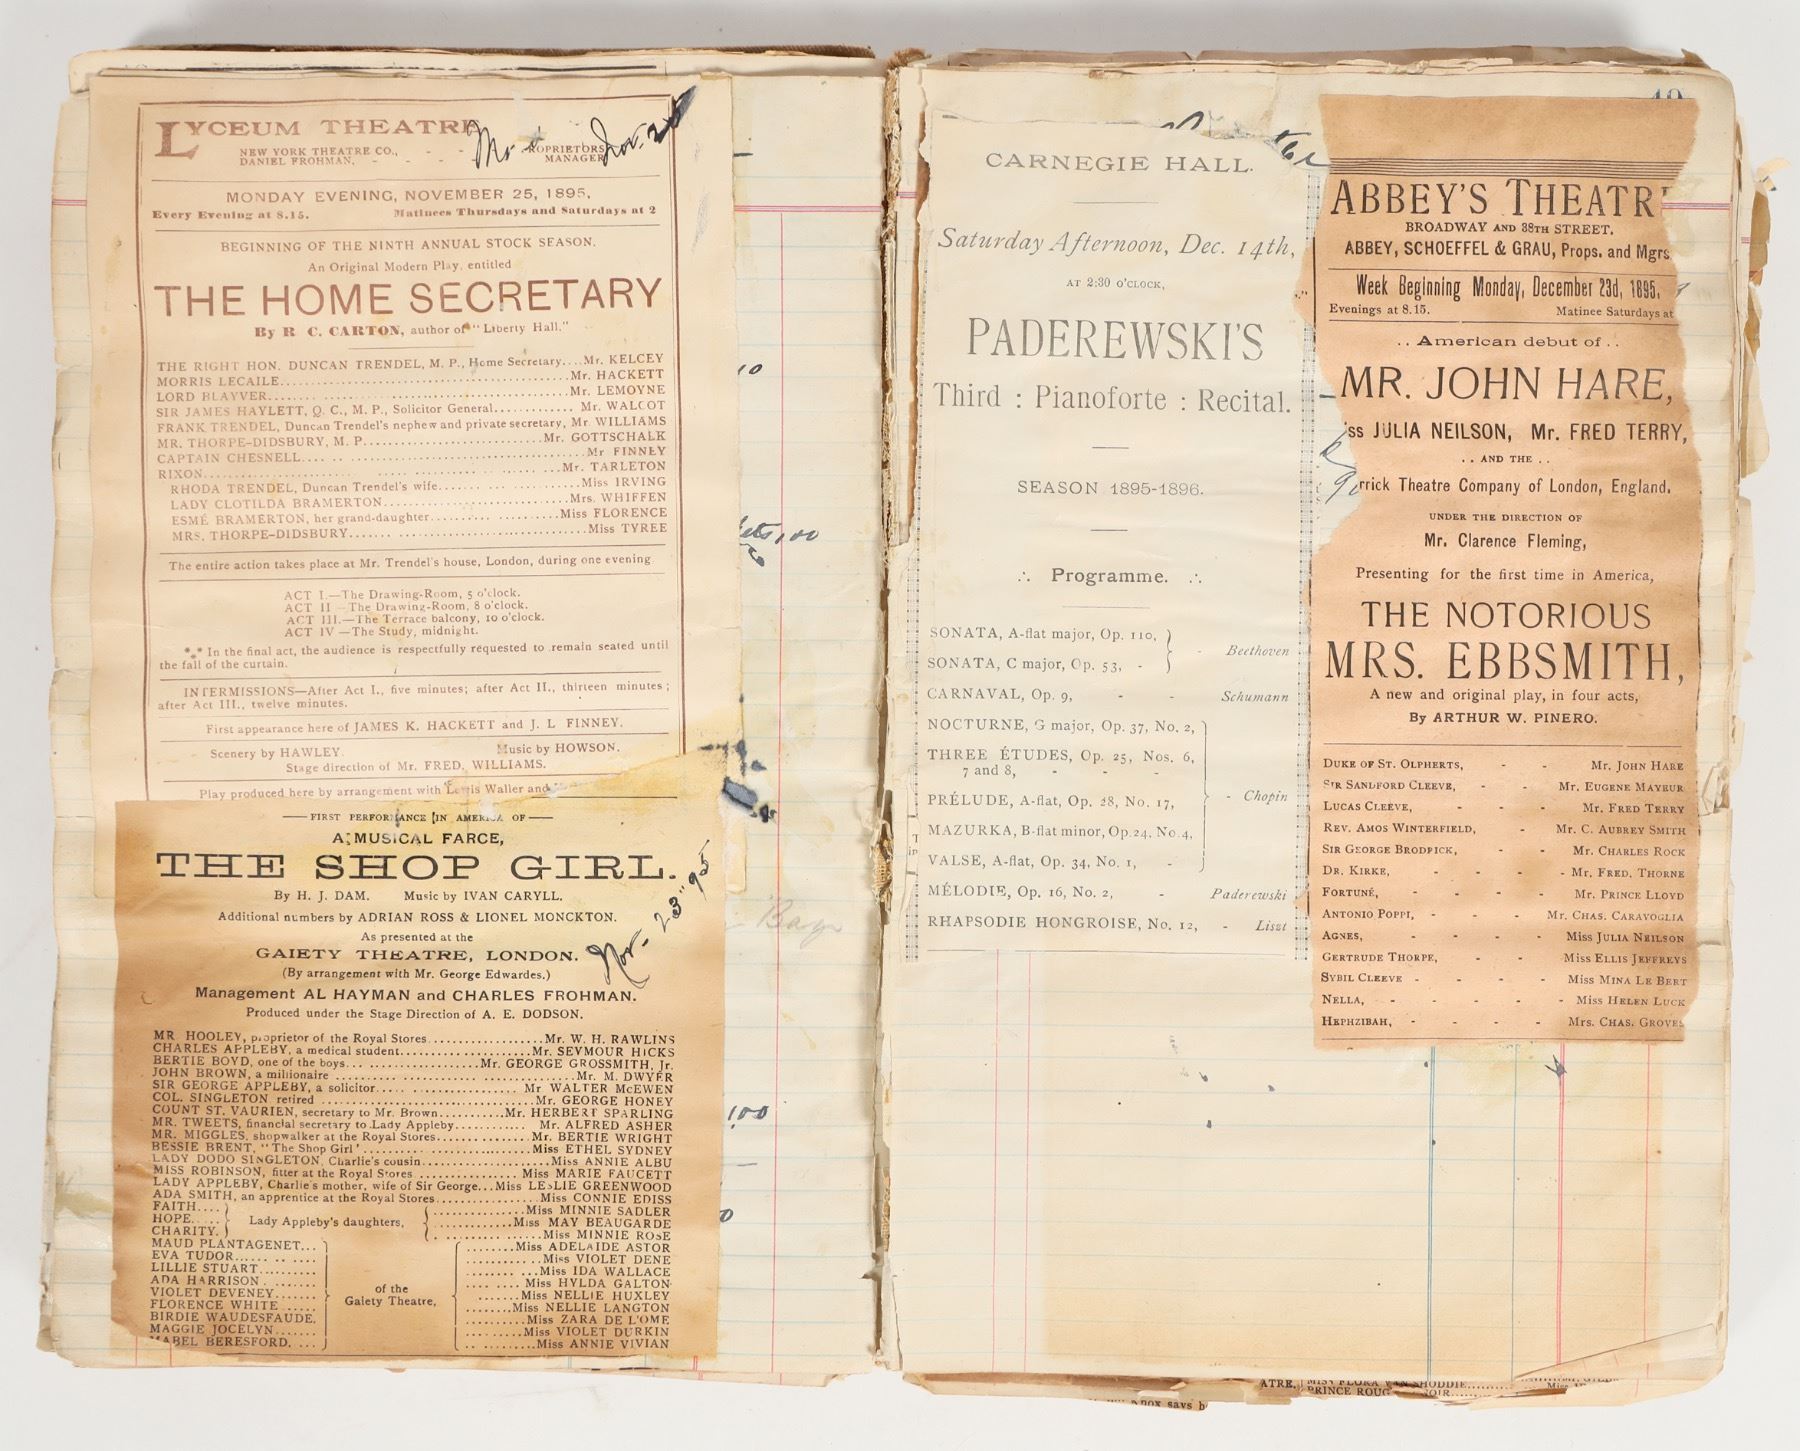 LYCEUM THEATRE
NEW YORK THEATRE CO., - - PROPRIETORS
DANIEL FROHMAN, - - - MANAGER
Nov. 25
MONDAY EVENING, NOVEMBER 25, 1895,
Every Evening at 8.15. Matinees Thursdays and Saturdays at 2
BEGINNING OF THE NINTH ANNUAL STOCK SEASON.
An Original Modern Play, entitled
THE HOME SECRETARY
By R. C. CARTON, author of "Liberty Hall."
THE RIGHT HON. DUNCAN TRENDEL, M. P., Home Secretary....Mr. KELCEY
MORRIS LECAILE........Mr. HACKETT
LORD BLAYVER........Mr. LEMOYNE
SIR JAMES HAYLETT, Q. C., M. P., Solicitor General............ Mr. WALCOT
FRANK TRENDEL, Duncan Trendel's nephew and private secretary, Mr. WILLIAMS
MR. THORPE-DIDSBURY, M. P........Mr. GOTTSCHALK
CAPTAIN CHESNELL........Mr FINNEY
RIXON........Mr. TARLETON
RHODA TRENDEL, Duncan Trendel's wife........Miss IRVING
LADY CLOTILDA BRAMERTON........Mrs. WHIFFEN
ESMÉ BRAMERTON, her grand-daughter........Miss FLORENCE
MRS. THORPE-DIDSBURY........Miss TYREE
The entire action takes place at Mr. Trendel's house, London, during one evening
ACT I.—The Drawing-Room, 5 o'clock.
ACT II —The Drawing-Room, 8 o'clock.
ACT III.—The Terrace balcony, 10 o'clock.
ACT IV —The Study, midnight.
*** In the final act, the audience is respectfully requested to remain seated until
the fall of the curtain.
INTERMISSIONS—After Act I., five minutes; after Act II., thirteen minutes;
after Act III., twelve minutes.
First appearance here of JAMES K. HACKETT and J. L FINNEY.
Scenery by HAWLEY. Music by HOWSON.
Stage direction of Mr. FRED. WILLIAMS.
Play produced here by arrangement with Lewis Waller and
FIRST PERFORMANCE IN AMERICA OF
A MUSICAL FARCE,
THE SHOP GIRL.
By H. J. DAM. Music by IVAN CARYLL.
Additional numbers by ADRIAN ROSS & LIONEL MONCKTON.
As presented at the
GAIETY THEATRE, LONDON.
Nov. 23" 95
(By arrangement with Mr. George Edwardes.)
Management AL HAYMAN and CHARLES FROHMAN.
Produced under the Stage Direction of A. E. DODSON.
MR HOOLEY, proprietor of the Royal Stores........Mr. W. H. RAWLINS
CHARLES APPLEBY, a medical student........Mr. SEYMOUR HICKS
BERTIE BOYD, one of the boys........Mr. GEORGE GROSSMITH, Jr.
JOHN BROWN, a millionaire........Mr. M. DWYER
SIR GEORGE APPLEBY, a solicitor........Mr WALTER McEWEN
COL. SINGLETON retired........Mr. GEORGE HONEY
COUNT ST. VAURIEN, secretary to Mr. Brown........Mr. HERBERT SPARLING
MR. TWEETS, financial secretary to Lady Appleby............ Mr. ALFRED ASHER
MR. MIGGLES, shopwalker at the Royal Stores........Mr. BERTIE WRIGHT
BESSIE BRENT, "The Shop Girl"........Miss ETHEL SYDNEY
LADY DODO SINGLETON, Charlie's cousin........Miss ANNIE ALBU
MISS ROBINSON, fitter at the Royal Stores........Miss MARIE FAUCETT
LADY APPLEBY, Charlie's mother, wife of Sir George...Miss LESLIE GREENWOOD
ADA SMITH, an apprentice at the Royal Stores........Miss CONNIE EDISS
FAITH........Miss MINNIE SADLER
HOPE.... Lady Appleby's daughters, ....Miss MAY BEAUGARDE
CHARITY........Miss MINNIE ROSE
MAUD PLANTAGENET........Miss ADELAIDE ASTOR
EVA TUDOR........Miss VIOLET DENE
LILLIE STUART........Miss IDA WALLACE
ADA HARRISON........Miss HYLDA GALTON
VIOLET DEVENEY.... of the ....Miss NELLIE HUXLEY
FLORENCE WHITE.... Gaiety Theatre, ....Miss NELLIE LANGTON
BIRDIE WAUDESFAUDE........Miss ZARA DE L'OME
MAGGIE JOCELYN........Miss VIOLET DURKIN
MABEL BERESFORD........Miss ANNIE VIVIAN
CARNEGIE HALL.
Saturday Afternoon, Dec. 14th,
AT 2:30 O'CLOCK,
PADEREWSKI'S
Third : Pianoforte : Recital.
SEASON 1895-1896.
Programme.
SONATA, A-flat major, Op. 110,
SONATA, C major, Op. 53, - - Beethoven
CARNAVAL, Op. 9, - - Schumann
NOCTURNE, G major, Op. 37, No. 2,
THREE ÉTUDES, Op. 25, Nos. 6,
7 and 8, - - -
PRÉLUDE, A-flat, Op. 28, No. 17, - Chopin
MAZURKA, B-flat minor, Op. 24, No. 4,
VALSE, A-flat, Op. 34, No. 1, -
MÉLODIE, Op. 16, No. 2, - Paderewski
RHAPSODIE HONGROISE, No. 12, - Liszt
ABBEY'S THEATR
BROADWAY AND 38TH STREET.
ABBEY, SCHOEFFEL & GRAU, Props. and Mgrs
Week Beginning Monday, December 23d, 1895,
Evenings at 8.15. Matinee Saturdays at
. . American debut of . .
MR. JOHN HARE,
iss JULIA NEILSON, Mr. FRED TERRY,
. . AND THE . .
rrick Theatre Company of London, England,
UNDER THE DIRECTION OF
Mr. Clarence Fleming,
Presenting for the first time in America,
THE NOTORIOUS
MRS. EBBSMITH,
A new and original play, in four acts,
By ARTHUR W. PINERO.
DUKE OF ST. OLPHERTS, - - MR. JOHN HARE
SIR SANDFORD CLEEVE, - - MR. EUGENE MAYEUR
LUCAS CLEEVE, - - - MR. FRED TERRY
REV. AMOS WINTERFIELD, - MR. C. AUBREY SMITH
SIR GEORGE BRODRICK, - - MR. CHARLES ROCK
DR. KIRKE, - - - - MR. FRED. THORNE
FORTUNÉ, - - - - MR. PRINCE LLOYD
ANTONIO POPPI, - - - MR. CHAS. CARAVOGLIA
AGNES, - - - - MISS JULIA NEILSON
GERTRUDE THORPE, - - MISS ELLIS JEFFREYS
SYBIL CLEEVE - - - - MISS MINA LE BERT
NELLA, - - - - - MISS HELEN LUCK
HEPHZIBAH, - - - - MRS. CHAS. GROVES
ATRE, MISS FLORA VAN SHODDIE
PRINCE ROUG
nox says